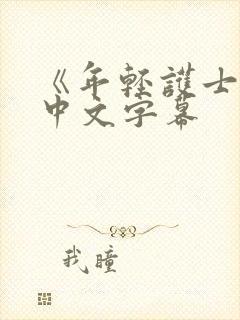 《年轻護士
中文字幕
我瞳